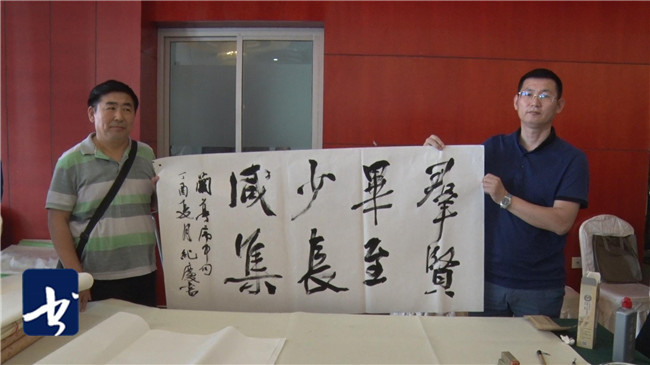 羣賢
畢至
少長
咸集
蘭亭序中句
丁酉夏月
书